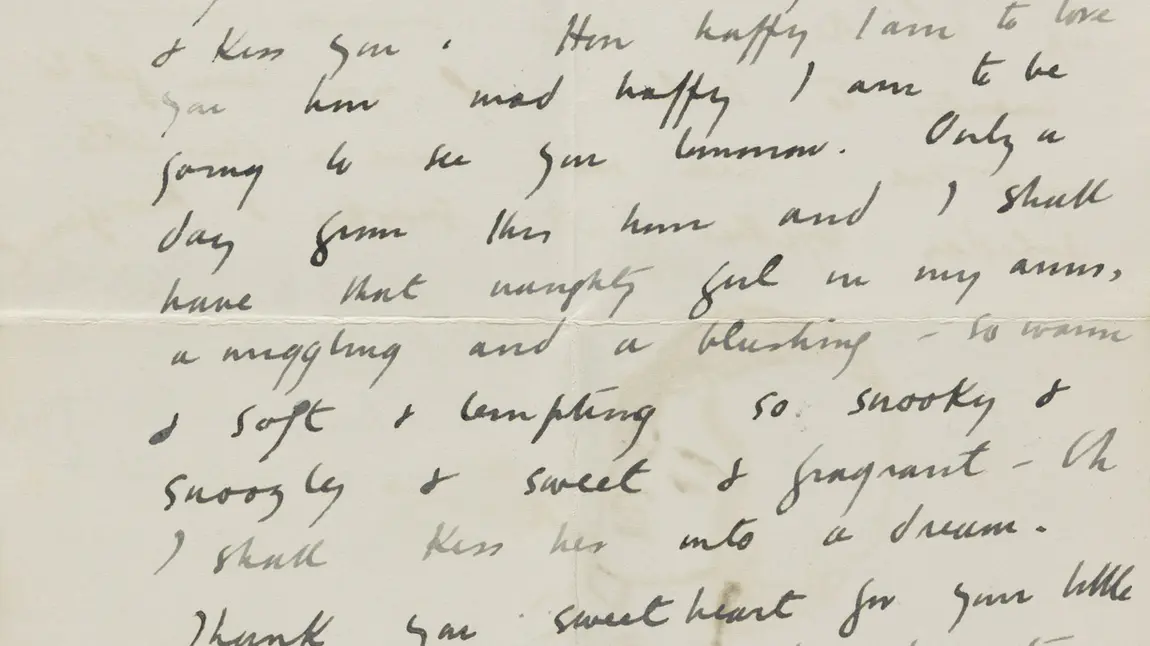 & Kiss you. How happy I am to love
you how mad happy I am to be
going to see you tomorrow. Only a
day from this hour and I shall
have that naughty girl in my arms,
a wriggling and a blushing – so warm
& soft & tempting so snooky &
snoogley & sweet & fragrant – Oh
I shall Kiss her into a dream.
Thank you sweetheart for your little